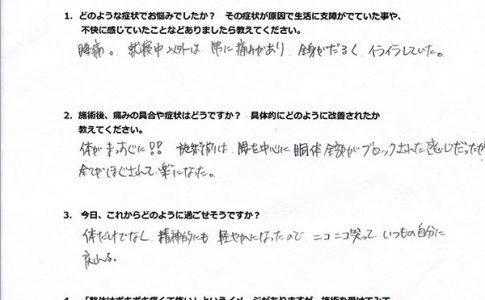 1. どのような症状でお悩みでしたか？ その症状が原因で生活に支障がでていた事や、
不快に感じていたことなどありましたら教えてください。
腰痛。就寝中以外は、常に痛みがあり、全身がだるく、イライラしていた。
2. 施術後、痛みの具合や症状はどうですか？ 具体的にどのように改善されたか
教えてください。
体がまっすぐに!! 施術前は、腰を中心に胴体全域がブロックされた感じだったが
全てほぐされて楽になった。
3. 今日、これからどのように過ごせそうですか？
体だけでなく、精神的にも軽やかになったので、ニコニコ笑って、いつもの自分に
戻れる。